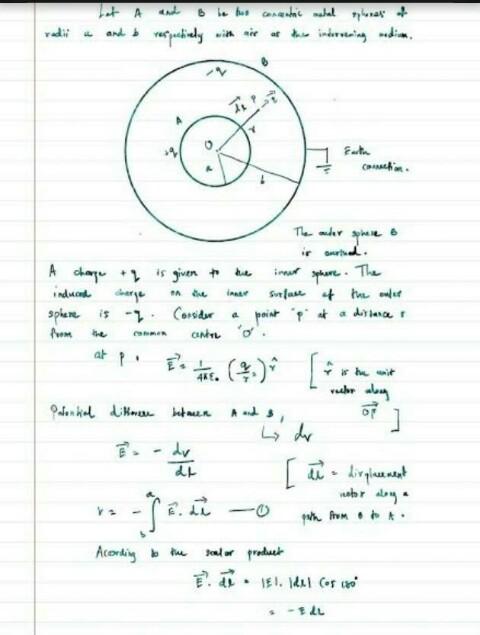 Let A and B be two concentric metal spheres of
radii a and b respectively with air as the intervening medium.
-q
B
A
+q
O
a
b
r
P
dl
r̂
Earth
connection.
The outer sphere B
is earthed.
A charge +q is given to the inner sphere. The
induced charge on the inner surface of the outer
sphere is -q. Consider a point 'p' at a distance r
from the common centre 'O'.
at p, E⃗ = 1/4πε₀ (q/r²) r̂ [ r̂ is the unit
vector along
OP⃗ ]
Potential difference between A and B,
↳ dv
E⃗ = - dv/dl [ dl⃗ = displacement
vector along a
path from B to A.
V = - ∫ₐᵇ E⃗ . dl⃗ — ①
According to the scalar product
E⃗ . dl⃗ = |E|. |dl| Cos 180°
= -E dl